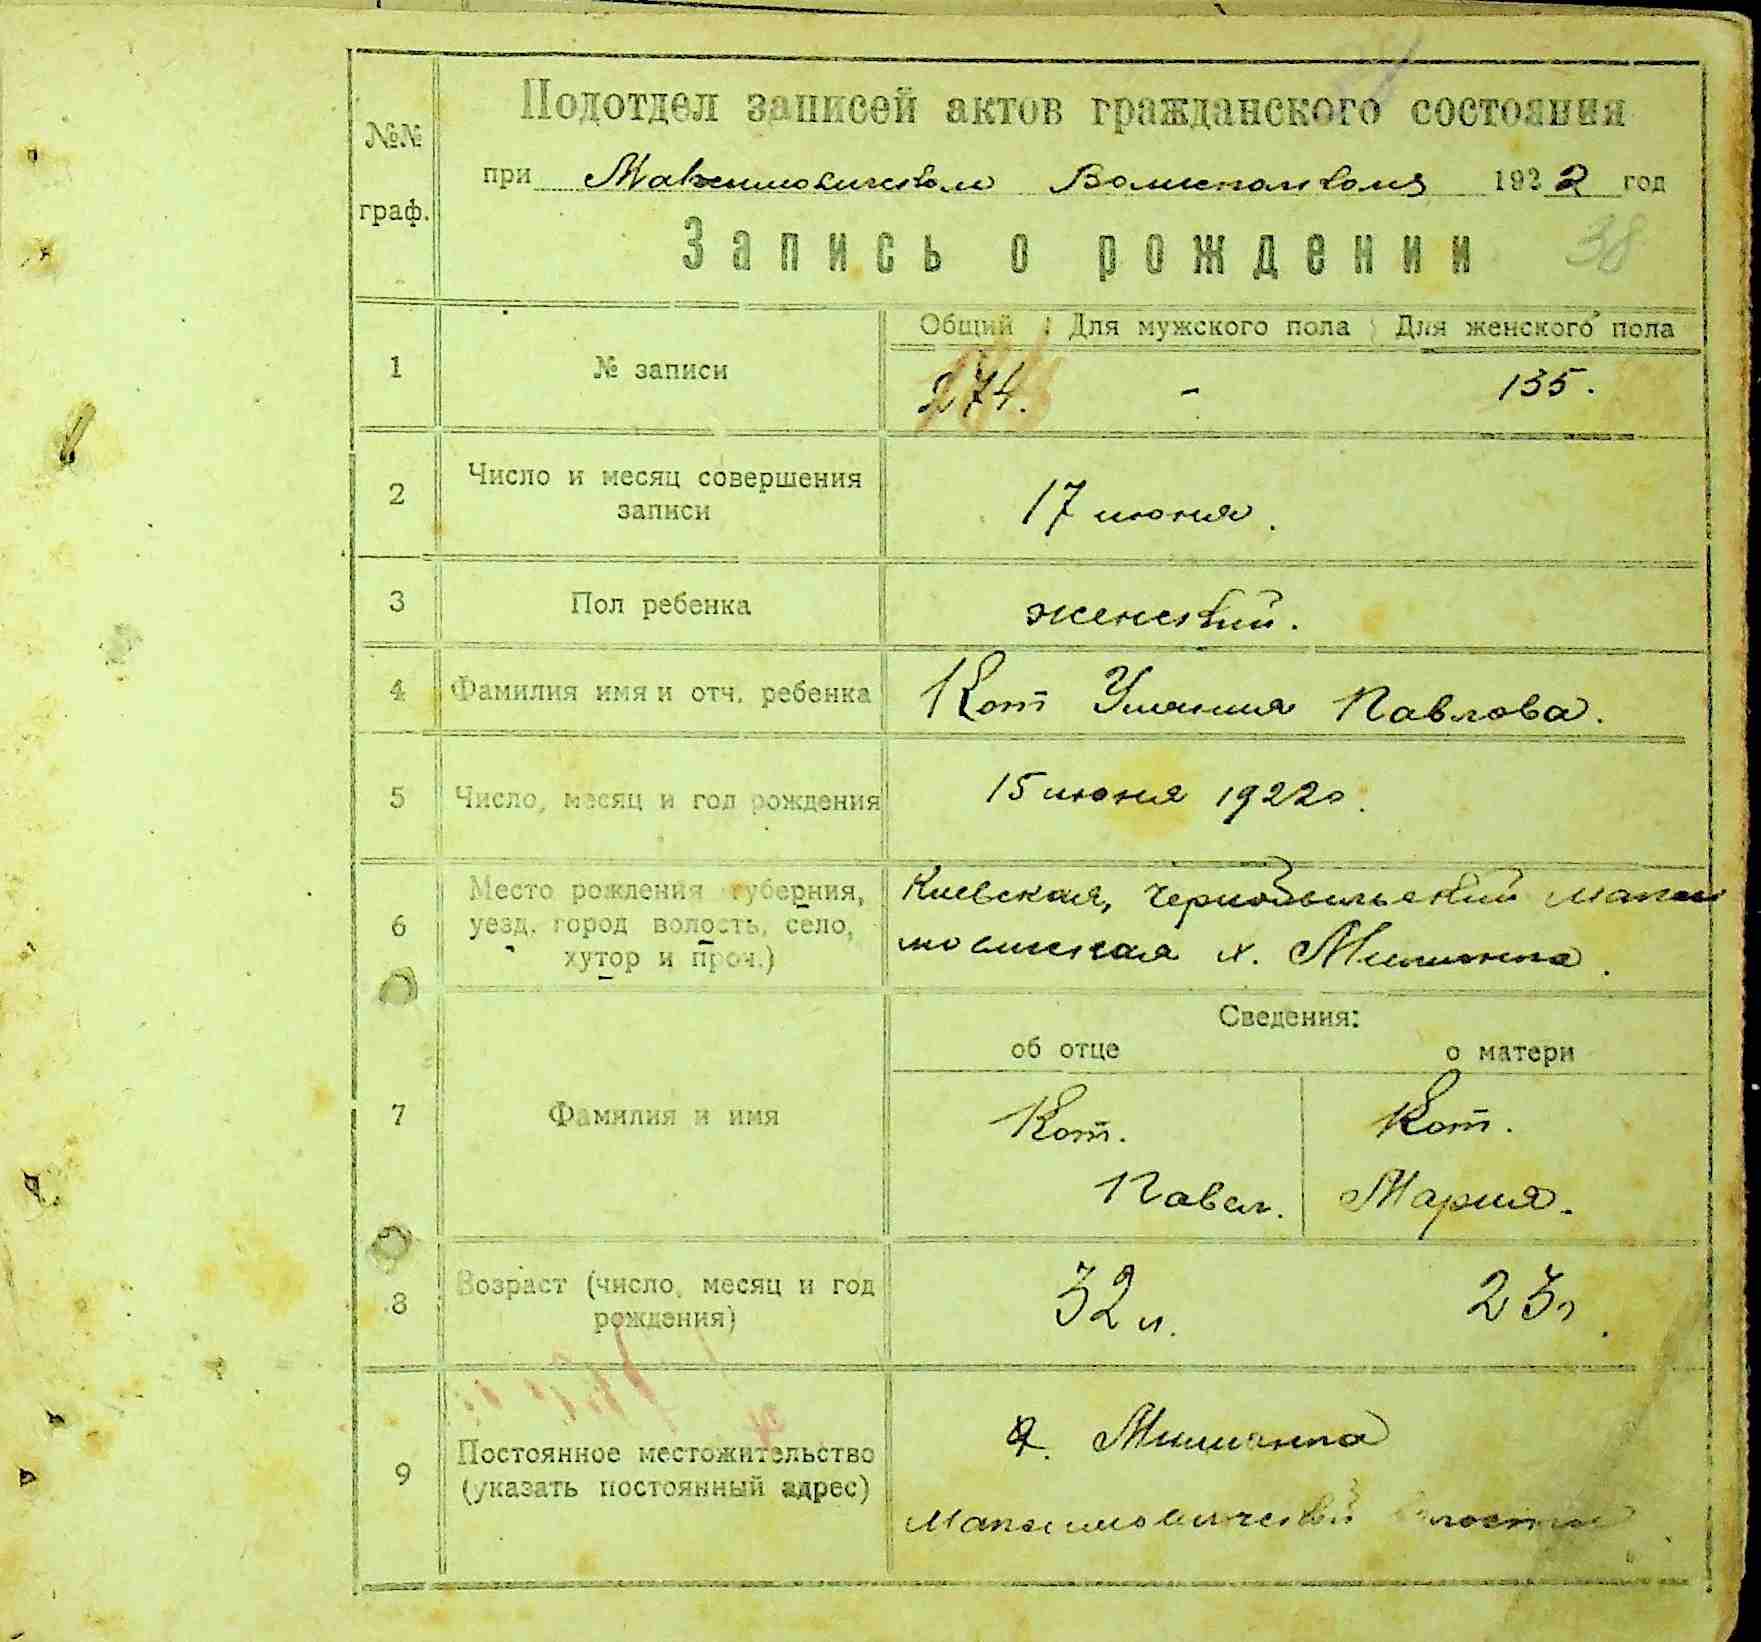 №№ граф.
Подотдел записей актов гражданского состояния
при Максимовичском Волисполкоме 1922 год
Запись о рождении
38
Общий Для мужского пола Для женского пола
1 № записи 274. - 135.
2 Число и месяц совершения
записи
17 июня.
3 Пол ребенка женский.
4 Фамилия имя и отч. ребенка Кот Ульяния Павлова.
5 Число, месяц и год рождения 15 июня 1922 г.
6 Место рождения губерния,
уезд, город волость, село,
хутор и проч.)
Киевская, Чернобыльский Макси
мовичская х.
Сведения:
об отце о матери
7 Фамилия и имя
Кот. Кот.
Павел. Мария.
8 Возраст (число, месяц и год
рождения)
32 л. 23 г.
9 Постоянное местожительство
(указать постоянный адрес)
х.
Максимовичской волости